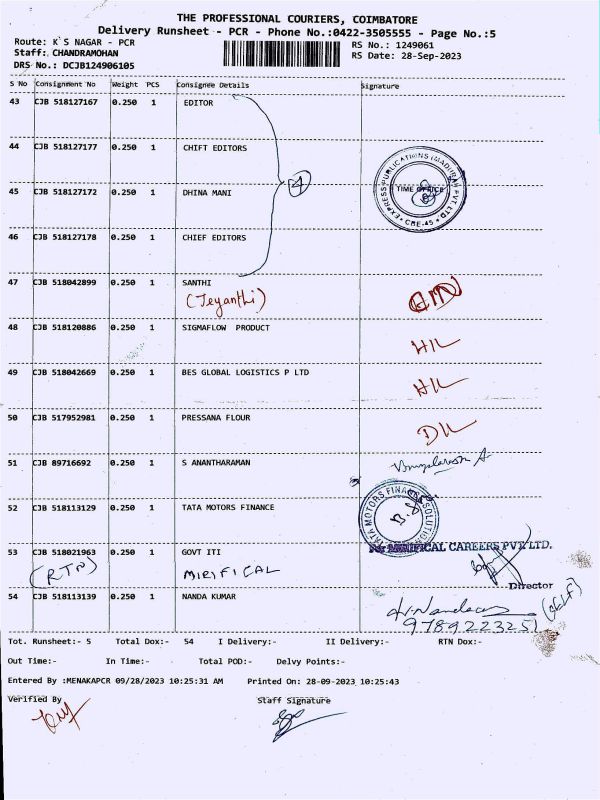 THE PROFESSIONAL COURIERS, COIMBATORE
Delivery Runsheet - PCR - Phone No.:0422-3505555 - Page No.:5
Route: K`S NAGAR - PCR
RS No.: 1249061
Staff:. CHANDRAMOHAN
RS Date: 28-Sep-2023
DRS No.: DCJB124906105
S No Consignment No Weight PCS Consignee Details Signature
43 CJB 518127167 0.250 1 EDITOR
44 CJB 518127177 0.250 1 CHIFT EDITORS
4
EXPRESS PUBLICATIONS (MADURAI) PVT. LTD.
TIME OFFICE
CBE-45
45 CJB 518127172 0.250 1 DHINA MANI
46 CJB 518127178 0.250 1 CHIEF EDITORS
47 CJB 518042899 0.250 1 SANTHI
(Jeyanthi)
48 CJB 518120886 0.250 1 SIGMAFLOW PRODUCT
49 CJB 518042669 0.250 1 BES GLOBAL LOGISTICS P LTD
50 CJB 517952981 0.250 1 PRESSANA FLOUR
51 CJB 89716692 0.250 1 S ANANTHARAMAN
52 CJB 518113129 0.250 1 TATA MOTORS FINANCE
TATA MOTORS FINANCE SOLUTIONS
53 CJB 518021963 0.250 1 GOVT ITI
For MIRIFICAL CAREERS PVT. LTD.
(RTN) MIRIFICAL
Director
54 CJB 518113139 0.250 1 NANDA KUMAR
(SELF)
9789223251
Tot. Runsheet:- 5 Total Dox:- 54 I Delivery:- II Delivery:- RTN Dox:-
Out Time:- In Time:- Total POD:- Delvy Points:-
Entered By :MENAKAPCR 09/28/2023 10:25:31 AM Printed On: 28-09-2023 10:25:43
Verified By Staff Signature